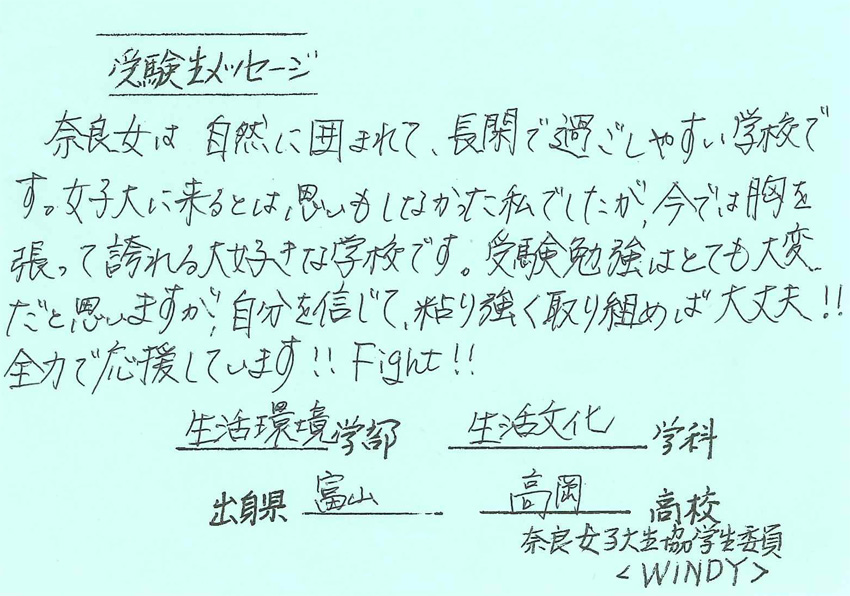 受験生メッセージ
奈良女は 自然に囲まれて、長閑で過ごしやすい学校で
す。女子大に来るとは思いもしなかった私でしたが、今では胸を
張って誇れる大好きな学校です。受験勉強はとても大変
だと思いますが、自分を信じて、粘り強く取り組めば大丈夫!!
全力で応援しています!! Fight!!
生活環境学部 生活文化学科
出身県 富山 高岡 高校
奈良女子大生協学生委員
<WINDY>